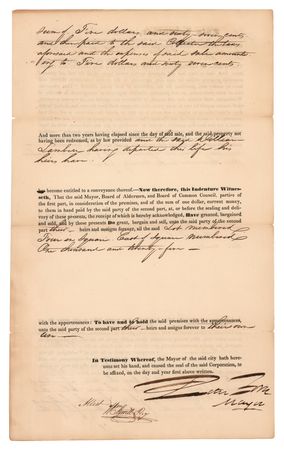 sum of Five dollars and sixty seven cents
and the
aforesaid and the expenses of said sale amount
ing to Five dollars and sixty seven cents.
And more than two years having elapsed since the day of said sale, and the said property not
having been redeemed, as by law provided and the said William
having departed this life his
heirs have
become entitled to a conveyance thereof.—Now therefore, this Indenture Witnes-
seth, That the said Mayor, Board of Aldermen, and Board of Common Council, parties of
the first part, in consideration of the premises, and of the sum of one dollar, current money,
to them in hand paid by the said party of the second part, at, or before the sealing and deli-
very of these presents, the receipt of which is hereby acknowledged, Have granted, bargained
and sold, and by these presents Do grant, bargain and sell, unto the said party of the second
part their heirs and assigns forever, all the said Lot numbered
Four in Square East of Square numbered
One thousand and twenty-five
with the appurtenances: To have and to hold the said premises with the appurtenances,
unto the said party of the second part their heirs and assigns forever to their own
use
In Testimony Whereof, the Mayor of the said city hath here-
unto set his hand, and caused the seal of the said Corporation, to
be affixed, on the day and year first above written.
Peter Force
Mayor
Attest